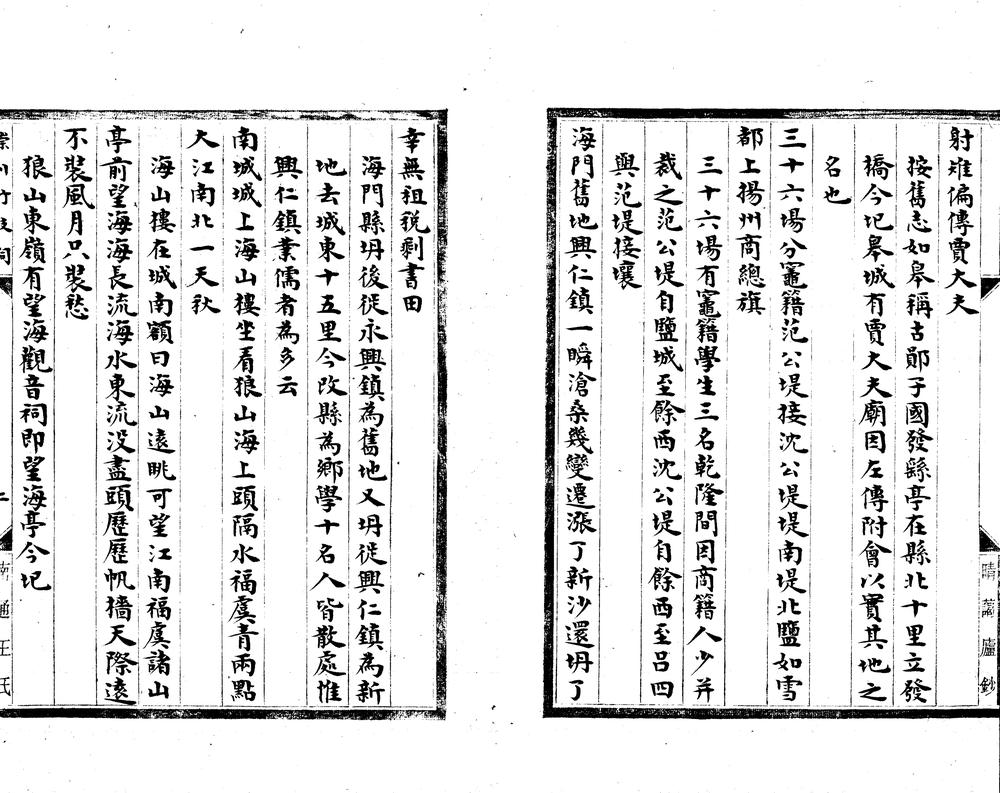 射雉偏傳賈大夫
按舊志如皋稱古鄖子國發繇亭在縣北十里立發
橋今圮皋城有賈大夫廟因左傳附會以實其地之
名也
三十六場分竈籍范公堤接沈公堤堤南堤北鹽如雪
都上揚州商總旗
三十六場有竈籍學生三名乾隆間因商籍人少并
裁之范公堤自鹽城至餘西沈公堤自餘西至呂四
與范堤接壤
海門舊地興仁鎮一瞬滄桑幾變遷漲了新沙還坍了
晴藹廬鈔
幸無租稅剩書田
海門縣坍後徙永興鎮為舊地又坍徙興仁鎮為新
地去城東十五里今改縣為鄉學十名人皆散處惟
興仁鎮業儒者為多云
南城城上海山樓坐看狼山海上頭隔水福虞青兩點
大江南北一天秋
海山樓在城南額曰海山遠眺可望江南福虞諸山
亭前望海海長流海水東流没盡頭歷歷帆檣天際遠
不裝風月只裝愁
狼山東嶺有望海觀音祠即望海亭今圮
崇川竹枝詞
二
南通王氏